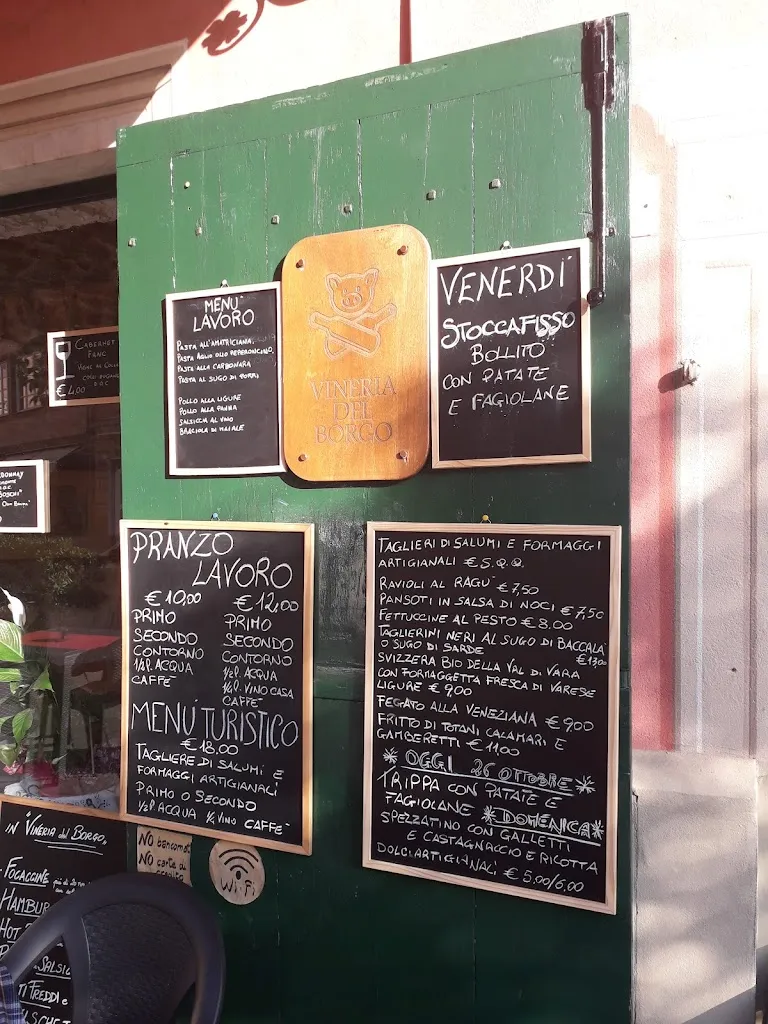 MENU'
LAVORO
PASTA ALL'AMATRICIANA,
PASTA AGLIO OLIO PEPERONCINO,
PASTA ALLA CARBONARA
PASTA AL SUGO DI PORRI
POLLO ALLA LIGURE
POLLO ALLA PANNA
SALSICCIA AL VINO
BRACIOLA DI MAIALE
VINERIA
DEL
BORGO
VENERDI'
STOCCAFISSO
BOLLITO
CON PATATE
E FAGIOLANE
CABERNET
FRANC
€ 4,00
D.O.C
PRANZO
LAVORO
€ 10,00
PRIMO
SECONDO
CONTORNO
1/2 P. ACQUA
CAFFE'
€ 12,00
PRIMO
SECONDO
CONTORNO
1/2 P. ACQUA
1/4 P. VINO CASA
CAFFE'
MENU' TURISTICO
€ 18.00
TAGLIERE DI SALUMI E
FORMAGGI ARTIGIANALI
PRIMO O SECONDO
1/2 P. ACQUA 1/4 VINO CAFFE'
TAGLIERI DI SALUMI E FORMAGGI
ARTIGIANALI € S.Q.Q.
RAVIOLI AL RAGU' € 7,50
PANSOTI IN SALSA DI NOCI € 7,50
FETTUCCINE AL PESTO € 8.00
TAGLIERINI NERI AL SUGO DI BACCALA'
O SUGO DI SARDE € 13,00
SVIZZERA BIO DELLA VAL DI VARA
CON FORMAGGETTA FRESCA DI VARESE
LIGURE € 9,00
FEGATO ALLA VENEZIANA € 9,00
FRITTO DI TOTANI CALAMARI E
GAMBERETTI € 11,00
* OGGI 26 OTTOBRE *
TRIPPA CON PATATE E
FAGIOLANE *DOMENICA*
SPEZZATINO CON GALLETTI
E CASTAGNACCIO E RICOTTA
DOLCI ARTIGIANALI € 5.00/6.00
IN "VINERIA del BORGO"
FOCACCINE
HAMBUR
HOT
SALSIC
FREDDI e
NO bancomat
NO carte di
Wi Fi